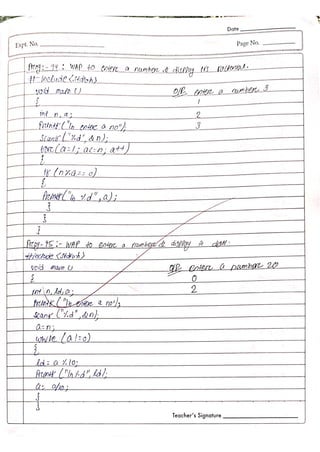 Date
Expt. No.
Page No.
Prog:- 14 : WAP to enter a number & display its factorial.
# include <stdio.h>
void main ()
O/P enter a number 3
{
1
int n, a;
2
Printf ("\n enter a no");
3
Scanf ("%d", &n);
for (a=1; a<=n; a++)
{
if (n%a==0)
{
Printf ("\n %d", a);
}
}
}
Prog:- 15 :- WAP to enter a number & display it digit.
#include <stdio.h>
void main ()
O/P enter a number 20
{
0
int n, ld, a;
2
Printf ("\n enter a no");
Scanf ("%d", &n);
a=n;
while (a!=0)
{
ld= a %10;
Printf ("\n %d", ld);
a= a/10;
}
}
Teacher's Signature